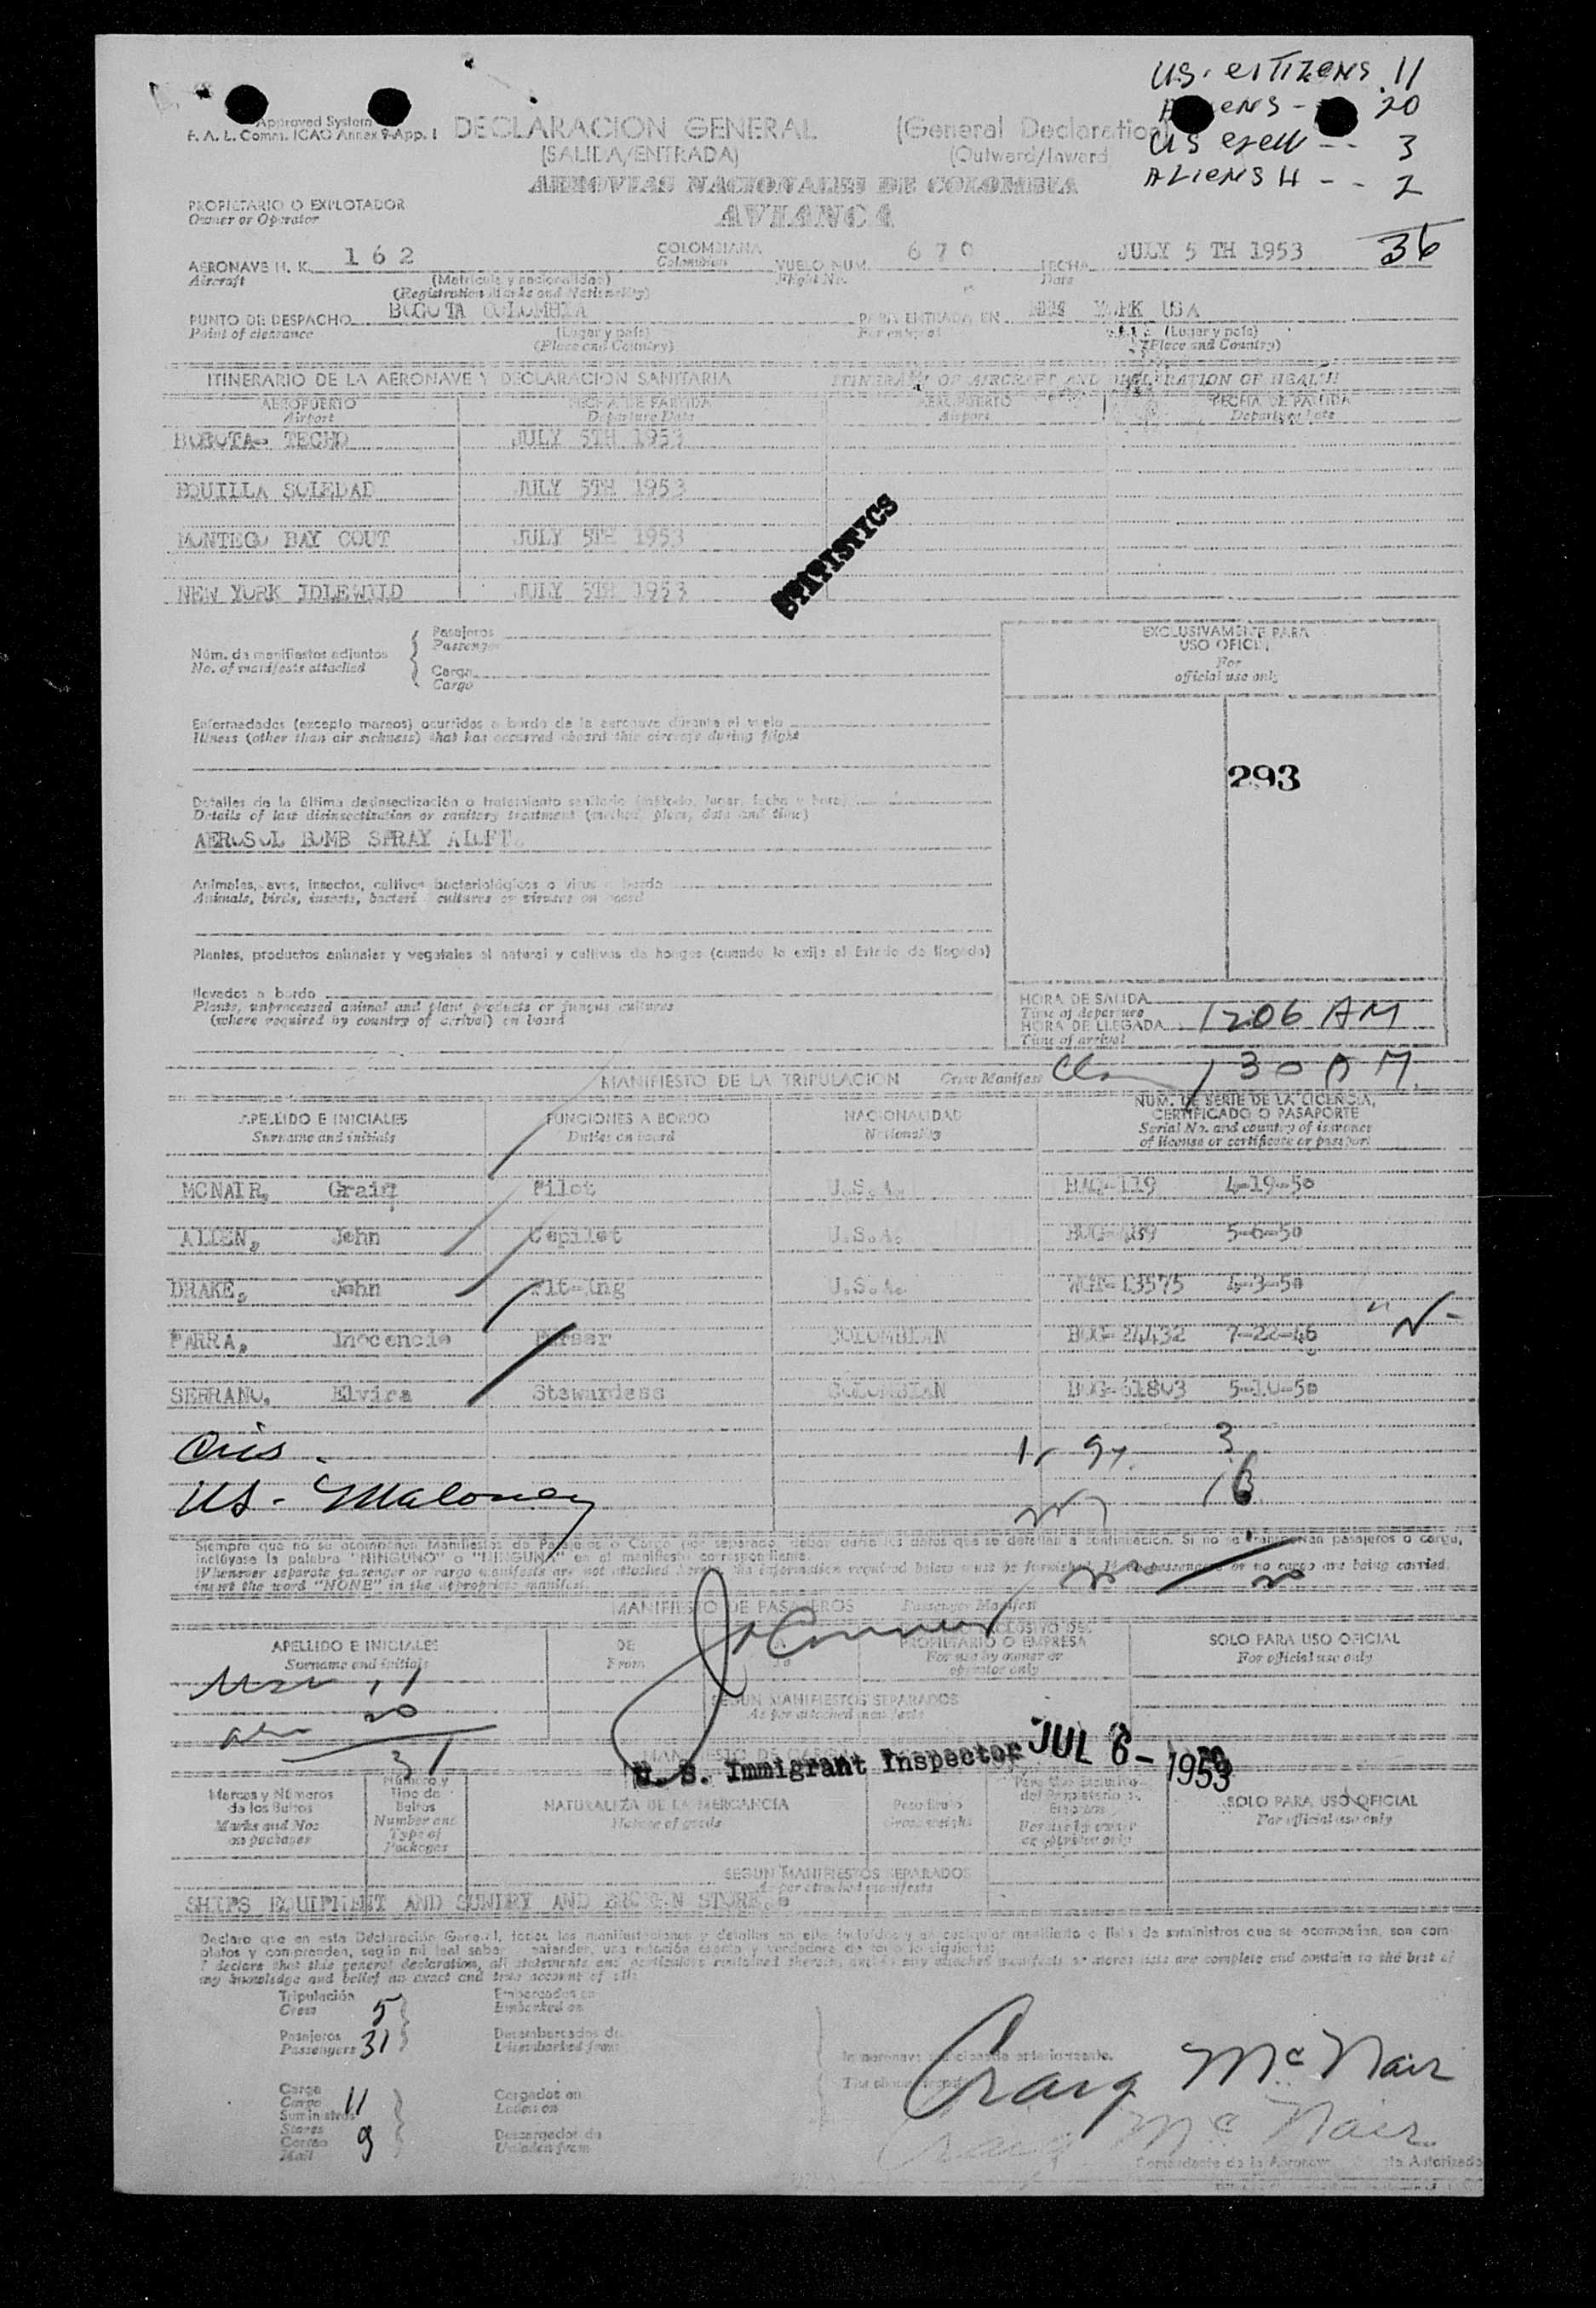 US. CITIZENS. 11
ALIENS - 20
US CREW -- 3
ALIENS 4 -- 2
36
Approved System
F. A. L. Comm. ICAO Annex 9-App. 1
DECLARACION GENERAL (General Declaration)
(SALIDA/ENTRADA) (Outward/Inward
AEROVIAS NACIONALES DE COLOMBIA
AVIANCA
PROPIETARIO O EXPLOTADOR
Owner or Operator
AERONAVE H. K. 162 COLOMBIANA VUELO NUM. 670 FECHA JULY 5 TH 1953
Aircraft (Matrícula y nacionalidad) Colombian Flight No. Date
(Registration Marks and Nationality)
PUNTO DE DESPACHO BOGOTA COLOMBIA PARA ENTRADA EN NEW YORK USA
Point of clearance (Lugar y país) For entry at (Lugar y país)
(Place and Country) (Place and Country)
ITINERARIO DE LA AERONAVE Y DECLARACION SANITARIA ITINERARY OF AIRCRAFT AND DECLARATION OF HEALTH
AEROPUERTO FECHA DE PARTIDA AEROPUERTO FECHA DE PARTIDA
Airport Departure Date Airport Departure Date
BOGOTA- TECHO JULY 5TH 1953
BQUILLA SOLEDAD JULY 5TH 1953
MONTEGO BAY COUT JULY 5TH 1953
NEW YORK IDLEWILD JULY 5TH 1953
STATISTICS
Núm. de manifiestos adjuntos
No. of manifests attached
Pasajeros
Passenger
Carga
Cargo
EXCLUSIVAMENTE PARA
USO OFICIAL
For
official use only
293
Enfermedades (excepto mareos) ocurridas a bordo de la aeronave durante el vuelo
Illness (other than air sickness) that has occurred aboard this aircraft during flight
Detalles de la última desinsectización o tratamiento sanitario (método, lugar, fecha y hora)
Details of last disinsectization or sanitary treatment (method, place, date and time)
AEROSOL BOMB SPRAY ALOFT.
Animales, aves, insectos, cultivos bacteriológicos o virus a bordo
Animals, birds, insects, bacteri cultures or viruses on board
Plantas, productos animales y vegetales al natural y cultivos de hongos (cuando lo exija el Estado de llegada)
llevados a bordo
Plants, unprocessed animal and plant products or fungus cultures
(where required by country of arrival) on board
HORA DE SALIDA
Time of departure
HORA DE LLEGADA 1206 AM
Time of arrival
130 AM.
MANIFIESTO DE LA TRIPULACION Crew Manifest
APELLIDO E INICIALES FUNCIONES A BORDO NACIONALIDAD NUM. DE SERIE DE LA LICENCIA,
CERTIFICADO O PASAPORTE
Surname and initials Duties on board Nationality Serial No. and country of issuance
of license or certificate or passport
MCNAIR, Graig Pilot U.S.A. BAQ-119 4-19-50
ALLEN, John Copilot U.S.A. BOG-489 5-6-50
DRAKE, John Flt-ing U.S.A. WGT-13575 4-3-50
PARRA, Inocencio Purser COLOMBIAN BOG-24432 7-22-46
SERRANO, Elvira Stewardess COLOMBIAN BOG-61803 5-10-50
US - Maloney
Siempre que no se acompañen Manifiestos de Pasajeros o Carga por separado, deben darse los datos que se detallan a continuación. Si no se transportan pasajeros o carga,
inclúyase la palabra "NINGUNO" o "NINGUNA" en el manifiesto correspondiente.
Whenever separate passenger or cargo manifests are not attached hereto, the information required below must be furnished. If no passengers or no cargo are being carried,
insert the word "NONE" in the appropriate manifest.
MANIFIESTO DE PASAJEROS Passenger Manifest
APELLIDO E INICIALES DE PROPIETARIO O EMPRESA SOLO PARA USO OFICIAL
Surname and initials From For use by owner or For official use only
operator only
11
20
31
SEGUN MANIFIESTOS SEPARADOS
As per attached manifests
U. S. Immigrant Inspector JUL 6 - 1953
Marcas y Números
de los Bultos
Marks and Nos
on packages
Número y
Tipo de
Bultos
Number and
Type of
Packages
NATURALEZA DE LA MERCANCIA
Nature of goods
Peso Bruto
Gross weight
Para Uso Exclusivo
del Propietario o
Empresa
For use by owner
or operator only
SOLO PARA USO OFICIAL
For official use only
SEGUN MANIFIESTOS SEPARADOS
As per attached manifests
SHIPS EQUIPMENT AND SUNDRY AND BROKEN STORES
Declaro que en esta Declaración General, todas las manifestaciones y detalles en ella incluidos y en cualquier manifiesto o lista de suministros que se acompañan, son com-
pletos y comprenden, según mi leal saber entender, una relación exacta y verdadera de todo lo siguiente:
I declare that this general declaration, all statements and particulars contained therein, and in any attached manifests or stores lists are complete and contain to the best of
my knowledge and belief an exact and true account of all:
Tripulación
Crew 5
Pasajeros
Passengers 31
Embarcados en
Embarked on
Desembarcados de
Disembarked from
Carga
Cargo 11
Suministros
Stores
Correo 9
Mail
Cargados en
Laden on
Descargados de
Unladen from
la aeronave mencionada anteriormente.
Craig McNair
Craig McNair
Comandante de la Aeronave Autorizado